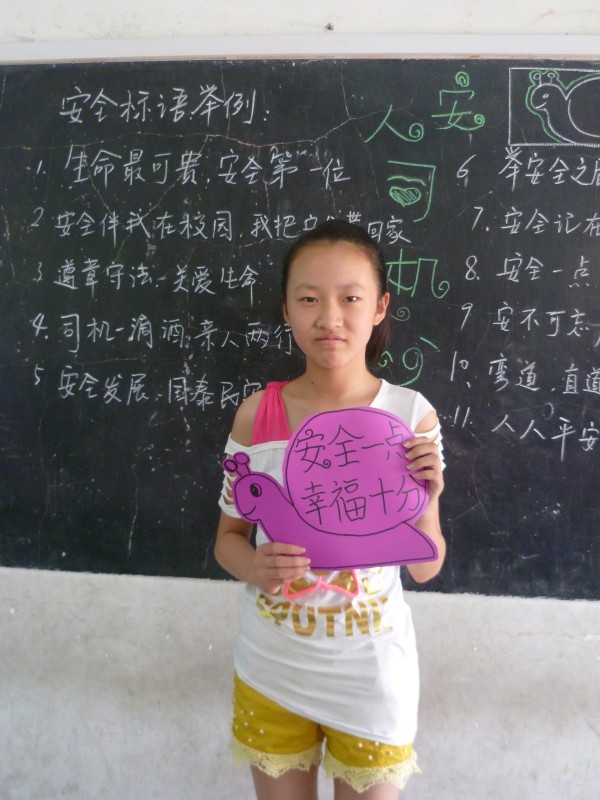 安全标语举例:
1. 生命最可贵,安全第一位
2 安全伴我在校园,我把
回家
3 遵章守法、关爱生命
4. 司机一滴酒,亲人两行
5 安全发展、国泰民安
安
人
司
机
6 举安全之
7. 安全记在
8. 安全一点
9 安不可忘
10、弯道,直道
11. 人人平安
安全一点
幸福十分
SPUTNI